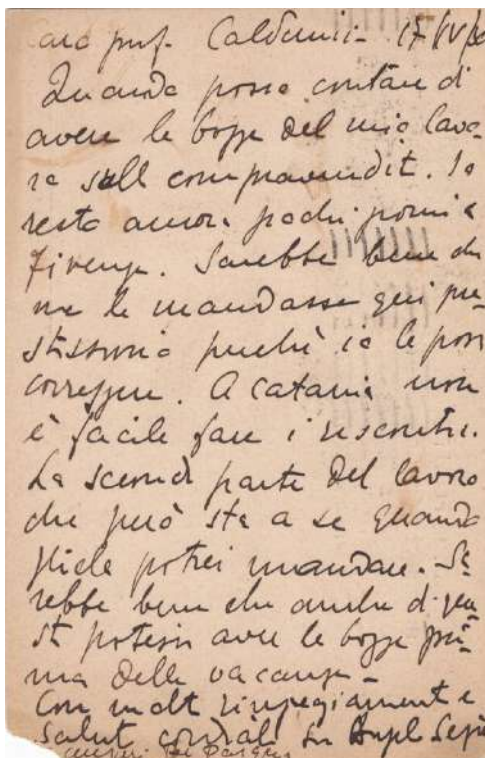 Caro prof. Calderini - 17/IV/30
Quando posso contare di
avere le bozze del mio lavo-
ro sull compravendit. Io
resto ancora pochi giorni a
Firenze. Sarebbe bene che
me le mandasse qui pre-
stissimo perchè io le possa
correggere. A Catania non
è facile fare i riscontri.
La seconda parte del lavoro
che però sta a se quando
gliela potrei mandare. Sa-
rebbe bene che anche di que-
st potessi avere le bozze pri-
ma delle vacanze -
Con molt ringraziamenti e
salut cordial suo Angelo Segrè
auguri Pasqua